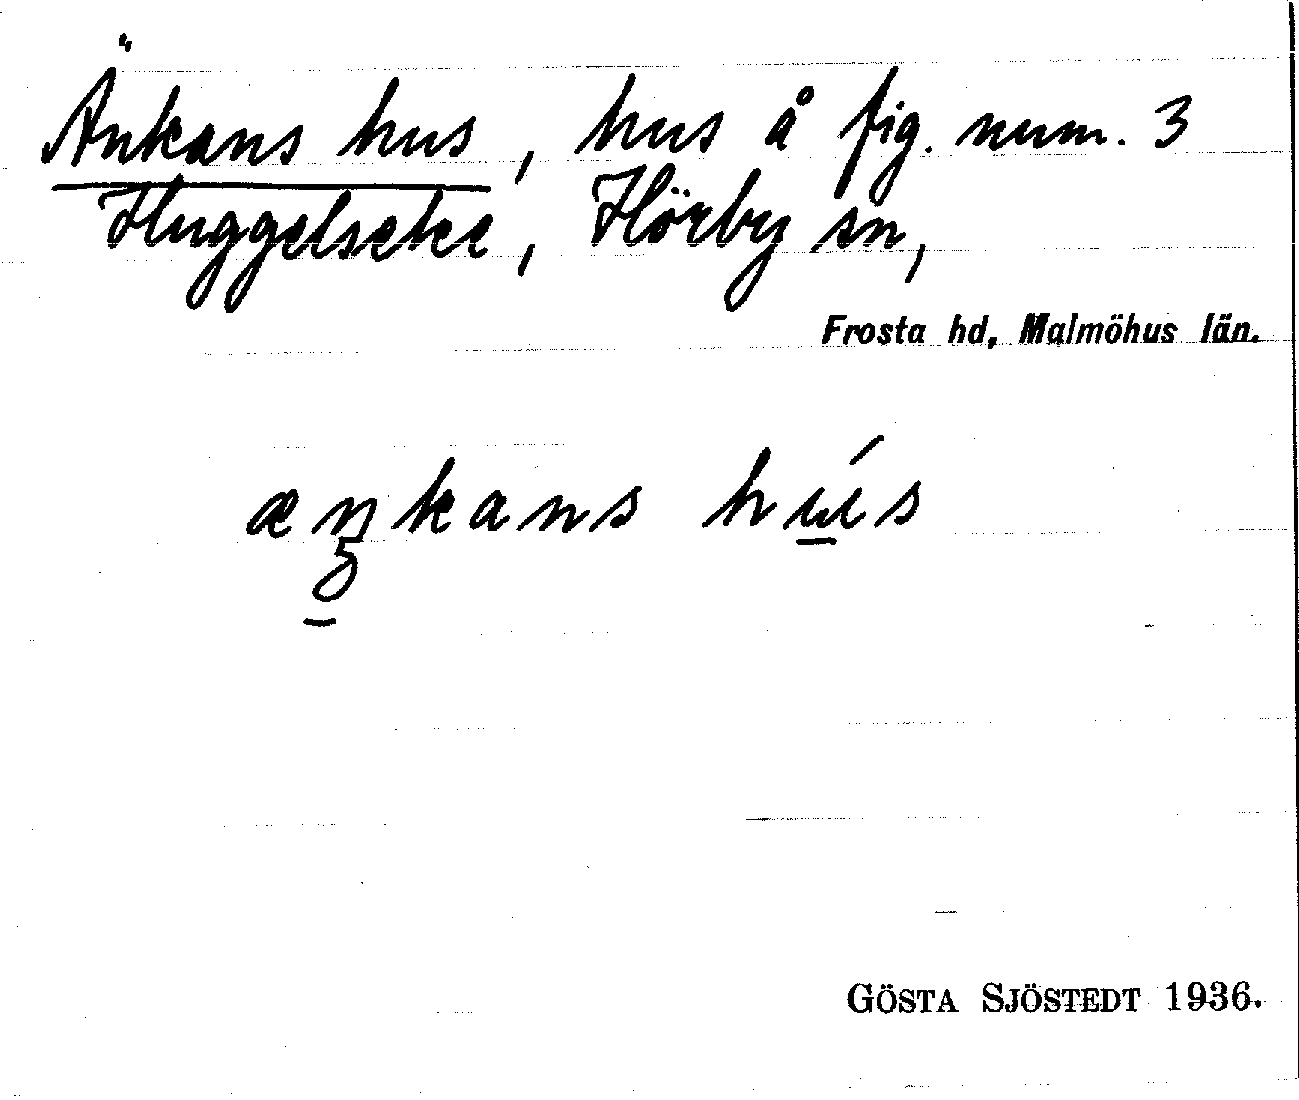 Änkans hus, hus å fig. num. 3
Huggelseke, Hörby sn,
Frosta hd, Malmöhus län.
æŋkans hú̲s
GÖSTA SJÖSTEDT 1936.